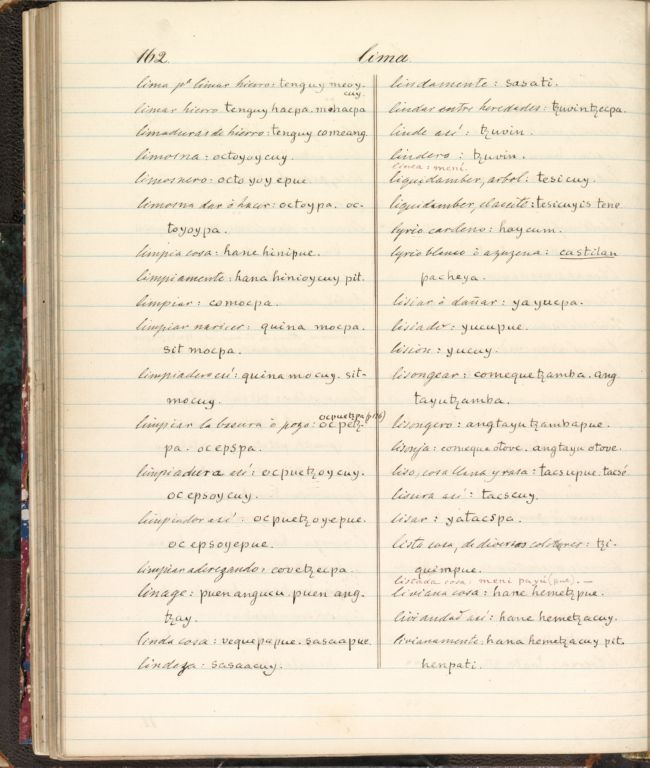 162.
lima.
lima pa limar hierro: tenguy meoy.
cuy.
limar hierro tenguy hacpa. mohacpa
limaduras de hierro: tenguy comeang.
limosna: octoyoycuy.
limosnero: octoyoyepue.
limosna dar ò hacer: octoypa. oc-
toyoypa.
limpia cosa: hane hinipue.
limpiamente: hana hinioycuy pit.
limpiar: comocpa.
limpiar narices: quina mocpa.
sit mocpa.
limpiadero así: quina mo cuy. sit-
mocuy.
ocpuetzpa (p 126)
limpiar la basura ò pozo: ocpetz-
pa. ocepspa.
limpiadura así: ocpuetzoycuy.
ocepsoycuy.
limpiador así: ocpuetzoyepue.
ocepsoyepue.
limpiar aderezando: covetzecpa.
linage: puenangucu. puen ang-
tzay.
linda cosa: vequepapue. sasaapue.
lindeza: sasaacuy.
lindamente: sasati.
lindar entre heredades: tzuvintzecpa.
linde así: tzuvin.
lindero: tzuvin.
linea: mení.
liquidamber, arbol: tesicuy.
liquidamber, el aceite: tesicuyis tene
lyrio cardeno: hoycum.
lyrio blanco ò azuzena: castilan
pacheya.
lisiar ò dañar: yayucpa.
lisiado: yucupue.
lision: yucuy.
lisongear: comequetzamba. ang
tayutzamba.
lisongero: angtayutzambapue.
lisonja: comeque otove. angtayu otove.
liso, cosa llana y rasa: tacsupue. tacsé
lisura así: tacscuy.
lisar: yatacspa.
listo cosa, de diversos colores: tzi-
quimpue.
listada cosa: meni payú (pue). —
liviana cosa: hane hemetzpue.
liviandad así: hane hemetzacuy.
livianamente: hana hemetzacuy pit.
henpati.